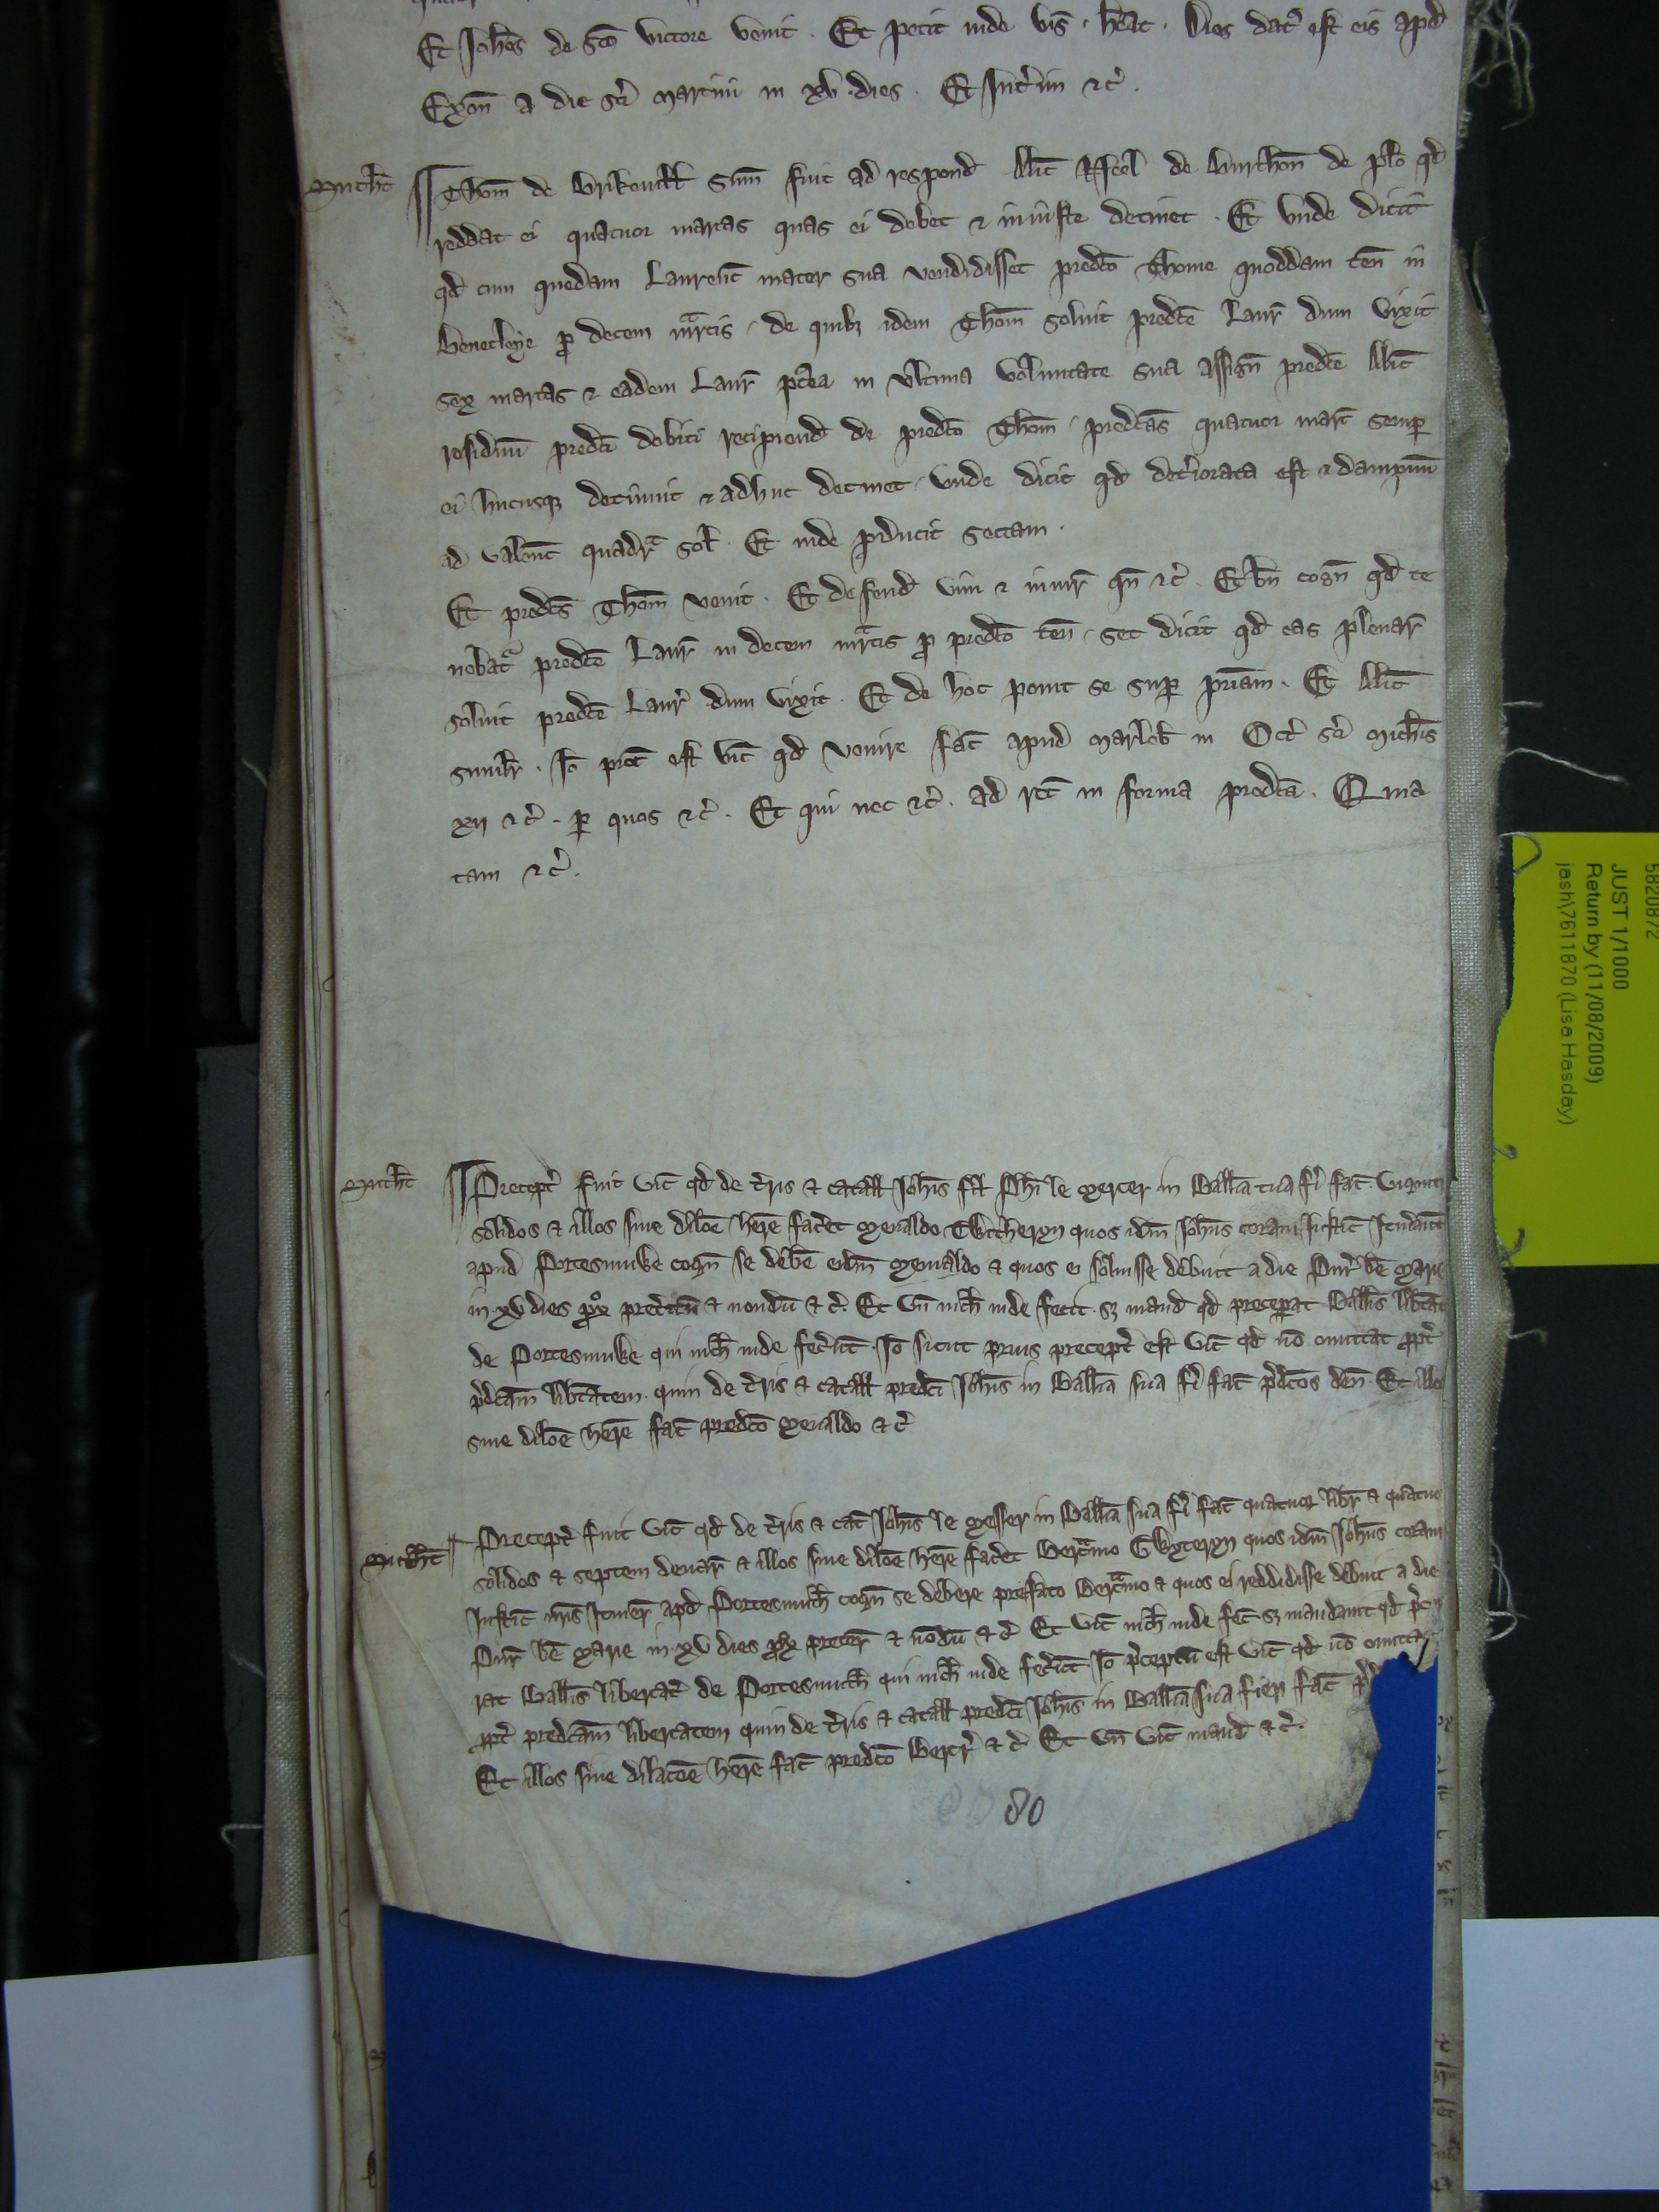 Et Joh̄es de Sc̄o Victore venit . Et petit inde vis̄ . h̄eat . Dies dat᷑ est eis apd̄
Exon̄ a die Sc̄i Martini in xv . dies . Et Int̄im ⁊c̃ .
Thom̄ de Brikeuill̄ Sum̄ fuit ad respond̄ Alic̄ de Burthon̄ de pl̄o qd̄
reddat ei quatuor marcas quas ei debet ⁊ iniuste detinet . Et Vnde dicit
qd̄ cum quedam Laurenc̄ mater sua vendidisset predc̄o Thome quoddam ten̄ in
Benetleye p̱ decem m̄rcis . de quibȝ idem Thom̄ soluit predc̄e Laur̄ dum vixit
sex marcas ⁊ eadem Laur̄ p̄tea in vltima voluntate sua assign̄ predc̄e Alic̄
residuū predc̄i debiti recipiend̄ de predc̄o Thom̄ . predc̄as quatuor marc̄ semp̱
ei hucusqȝ detinuit ⁊ adhuc detinet . Vnde dicit qd̄ det̄iorata est ⁊ dampnū
ad valenc̄ quadr̄ sol̄ . Et inde p̱ducit sectam .
Et predc̄s Thom̄ venit . Et defend̄ vim ⁊ iniur̄ qn̄ ⁊c̃ . Et bn̄ cogn̄ qd̄ te
nebat᷑ predc̄e Laur̄ in decem m̄rcis p̱ predc̄o ten̄ . set dicit qd̄ eas plenar̄
soluit predc̄e Laur̄ dum vixit . Et de hoc ponit se sup̱ p̄riam . Et Alic̄
simil̄r . Io̅ prec̄ est vic̄ qd̄ venire fac̄ apud Marleb̄ in Oct̄ sc̄i Mich̄is
xij ⁊c̃ . p̱ quos ⁊c̃ . Et qui nec ⁊c̃ . ad rec̄ in forma predc̄a . Quia
tam ⁊c̃ .
Precept̄ fuit vic̄ qd̄ de t̄ris ⁊ catall̄ Joh̄is fil̄ Ph̄i le Mercer in Ball̄ia sua fi᷑ fac̄
solidos ⁊ illos sine dil̄oe h̄ere fac̄et Menaldo quos idm̄ Joh̄nes coram Justic̄ Itin̄ant̄
apud Portesmuwe cogn̄ se deb̄e eidm̄ Menaldo ⁊ quos ei soluisse debuit a die Pur̄ b̄e Marie
in xv dies p̱x̊ pret̄itū ⁊ nondū ⁊ c̃ . Et vn̄ nich̄ inde fecit . sȝ mand̄ qd̄ precep̱at Ball̄is lib̄tat̄
de Portesmuwe qui nich̄ inde fec̄unt . Io̅ sicut prius precept̄ est vic̄ qd̄ nō omittat pp̱t̄
p̄dc̄am lib̄tatem . quin de t̄ris ⁊ catall̄ predc̄i Joh̄is in Ball̄ia sua fi᷑ fac̄ p̄dc̄os den̄ . Et illos
sine dil̄oe h̄ere fac̄ predc̄o Menaldo ⁊ c̃
Precept̄ fuit vic̄ qd̄ de t̄ris ⁊ cat̄ Joh̄is le Messer in Ball̄ia sua fi᷑ fac̄ quatuor libr̄ ⁊ quatuo
solidos ⁊ septem denar̄ ⁊ illos sine dil̄oe h̄ere fac̄et Bert̄mo quos idm̄ Joh̄nes coram
Justic̄ nr̄is Itiner̄ apd̄ Portesmuth̄ cogn̄ se debere prefato Bert̄mo ⁊ quos ei reddidisse debuit a die
Pur̄ b̄e Marie in xv dies p̱x preter̄ ⁊ nōdū ⁊ c̃ Et vic̄ nich̄ inde fec̄ . sȝ mandauit qd̄
rat Ball̄is libertat̄ de Portesmuth̄ qui nich̄ inde fec̄unt . Io̅ p̄ceptū est vic̄ qd̄ nō omitta
pp̱t̄ predc̄am libertatem quin de t̄ris ⁊ catall̄ predc̄i Joh̄is in Ball̄ia sua fieri fac̄
Et illos sine dilac̄oe h̄ere fac̄ predc̄o Bertr̄ ⁊ c̃ Et vn̄ vic̄ mand̄ ⁊ c̃ .
80
5820872
JUST 1/1000
Return by (11/08/2009)
jash\7611870 (Lisa Hasday)